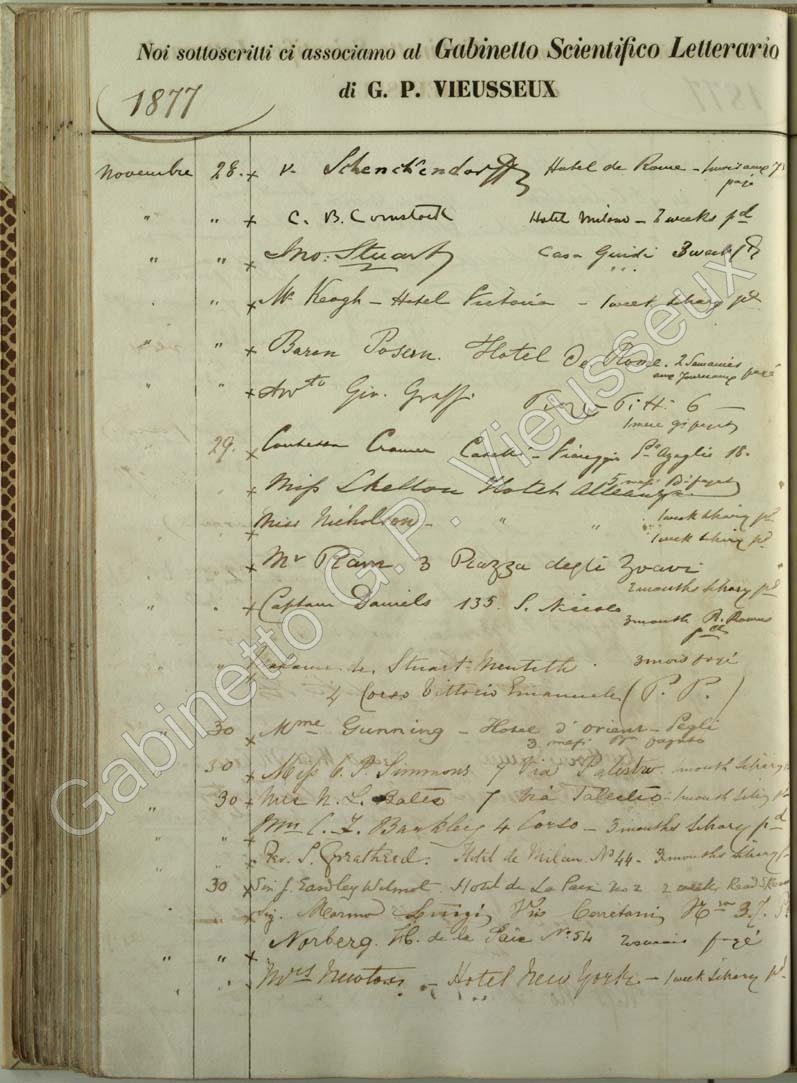 Noi sottoscritti ci associamo al Gabinetto Scientifico Letterario
di G. P. VIEUSSEUX
1877
Novembre 28. x v. Schenckendorff Hotel de Rome -
payé
" " x C. B. Comstock Hotel Milano - 2 weeks pd
" " x Jno: Stuart Casa Guidi 3 weeks pd
" " x Mr Keogh - Hotel Victoria - 1 week library pd
" " x Baron Posern. Hotel De Rome. 2 Semaines
aux Journaux payé
" " x Avvto Giv. Graffi Pitti 6 -
1 mese
29. x Contessa Cramer - Viareggio Po Azeglio 18.
5 mesi
x Miss Skelton Hotel Alleanza
x Miss Nicholson - " " 1 week library pd
1 week library pd
x Mr Ram 3 Piazza degli Zuavi "
2 months library pd
" " x Captain Daniels 135. S. Niccolo
3 month R. Rooms
pd
" " Madame de Stuart Menteth. 3 mois payé
4 Corso Vittorio Emanuele (P. P.)
" 30 x Mme Gunning - Hotel d'Orient - Pegli
3 mesi pagato
30 x Miss Simmons 7 Via Palestro month library
" 30 x Miss N. L. Bates 7 Via Palestro - 1 month
" " x C. Z. Barkley 4 Corso - 3 months library pd
" x Rev. S. Greatheed. Hotel de Milan. No 44 - 3 months library
30 x Sir J. Eardley Wilmot Hotel de La Paix no 2 2 weeks Read
" x Sig. Luigi Via Cerretani No 37.
x Norberg. H. de la Paix No 54 payé
" " x Mrs Newton - Hotel New York - 1 week library pd
Gabinetto G.P. Vieusseux